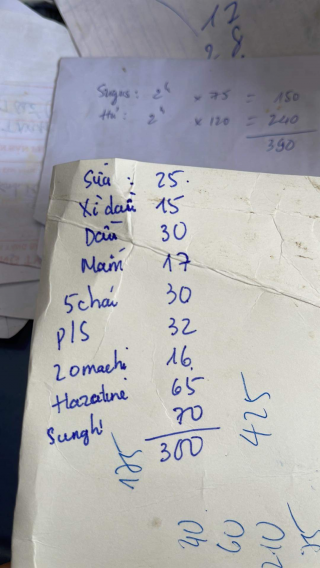 12
2,8
Sugus: 2ᵏ × 75 = 150
Hủ: 2ᵏ × 120 = 240
390
Sữa : 25.
Xì dầu 15
Dầu 30
Mắm 17
5 chai 30
P/S 32
2 omachi 16
Hazaline 65
Sunghi 70
300
125
425
40
60
210